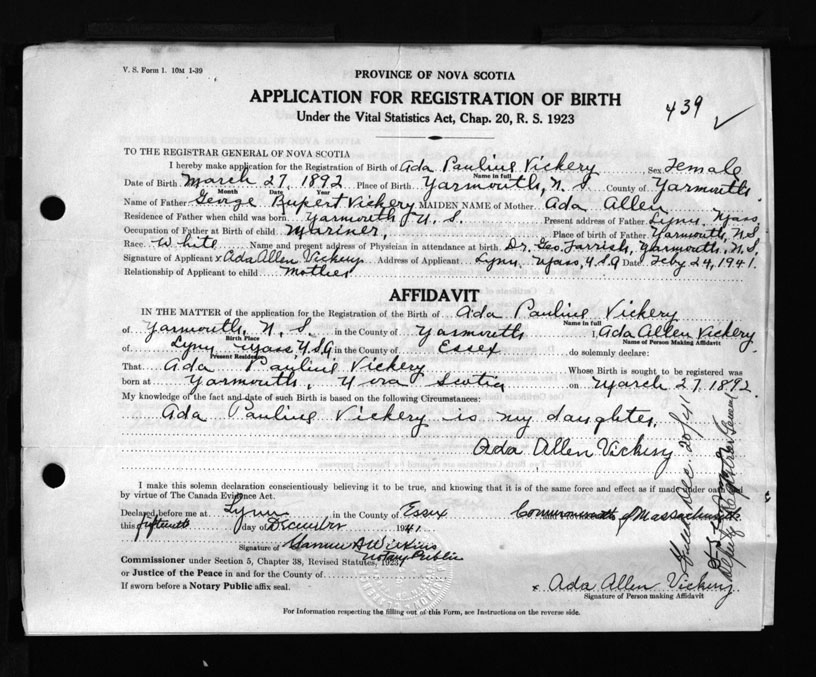 V. S. Form 1. 10M 1-39
PROVINCE OF NOVA SCOTIA
APPLICATION FOR REGISTRATION OF BIRTH
Under the Vital Statistics Act, Chap. 20, R. S. 1923
439 ✓
TO THE REGISTRAR GENERAL OF NOVA SCOTIA
I hereby make application for the Registration of Birth of Ada Pauline Vickery Sex Female
Name in full
Date of Birth March 27, 1892 Place of Birth Yarmouth, N. S. County of Yarmouth
Month Date Year
Name of Father George Rupert Vickery MAIDEN NAME of Mother Ada Allen
Residence of Father when child was born Yarmouth N. S. Present address of Father Lynn, Mass
Occupation of Father at Birth of child Mariner, Place of birth of Father Yarmouth, N S
Race White Name and present address of Physician in attendance at birth Dr. Geo. Farrish, Yarmouth, N. S.
Signature of Applicant x Ada Allen Vickery Address of Applicant Lynn Mass, U.S.A Date Feby 24, 1941.
Relationship of Applicant to child Mother
AFFIDAVIT
IN THE MATTER of the application for the Registration of the Birth of Ada Pauline Vickery
Name in full
of Yarmouth, N. S. in the County of Yarmouth I, Ada Allen Vickery
Birth Place Name of Person Making Affidavit
of Lynn Mass U.S.A in the County of Essex do solemnly declare:
Present Residence
That Ada Pauline Vickery Whose Birth is sought to be registered was
born at Yarmouth, Nova Scotia on March 27, 1892.
My knowledge of the fact and date of such Birth is based on the following Circumstances:
Ada Pauline Vickery is my daughter,
Ada Allen Vickery
I make this solemn declaration conscientiously believing it to be true, and knowing that it is of the same force and effect as if made under oath and
by virtue of The Canada Evidence Act.
Declared before me at Lynn in the County of Essex Commonwealth of Massachusetts
this fifteenth day of December 1941.
Signature of Wilkins
Notary Public
Commissioner under Section 5, Chapter 38, Revised Statutes, 1923
or Justice of the Peace in and for the County of
If sworn before a Notary Public affix seal.
x Ada Allen Vickery
Signature of Person making Affidavit
For Information respecting the filling out of this Form, see Instructions on the reverse side.
Filed Dec. 20/41
Deputy Registrar General